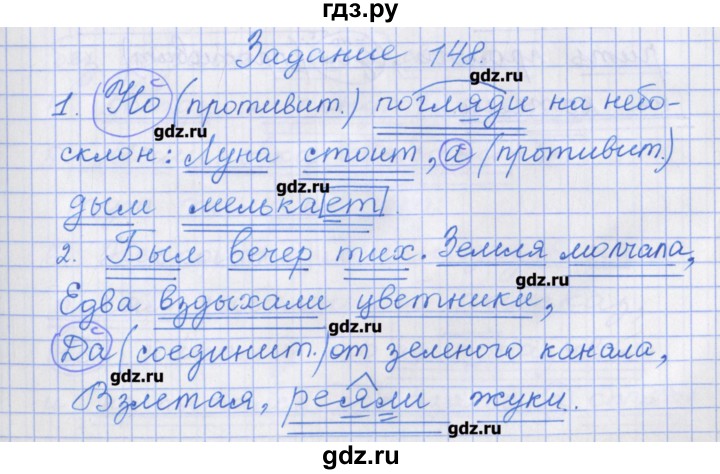 гдз.ру
Задание 148.
gdz.ru
1. Но (противит.) погляди на небо-
gdz.ru
склон: Луна стоит, а (противит.)
gdz.ru
дым мелькает.
gdz.ru
2. Был вечер тих. Земля молчала,
gdz.ru
Едва вздыхали цветники,
gdz.ru
Да (соединит.) от зеленого канала,
gdz.ru
Взлетая, реяли жуки.
gdz.ru